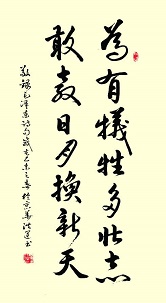 為有犧牲多壯志
敢教日月換新天
敬錄毛澤東詩句歲在乙未之春